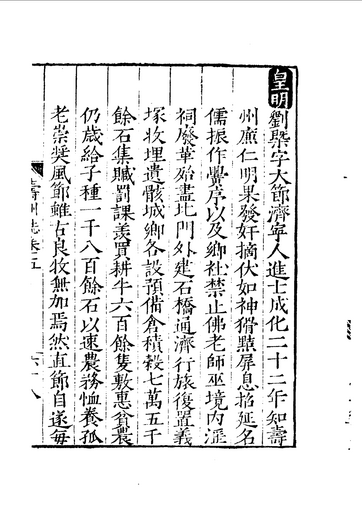 皇明劉槩字大節濟寧人進士成化二十二年知壽
州廉仁明果發奸摘伏如神猾黠屏息招延名
儒振作黌序以及鄉社禁止佛老師巫境内淫
祠廢革殆盡北門外建石橋通濟行旅復置義
塚收埋遺骸城鄉各設預備倉積穀七萬五千
餘石集贓罰課羨買耕牛六百餘隻敷惠貧農
仍歲給子種一千八百餘石以速農務恤養孤
老崇奨風節雖古良牧無加焉然直節自遂每
壽州志卷五
六十八